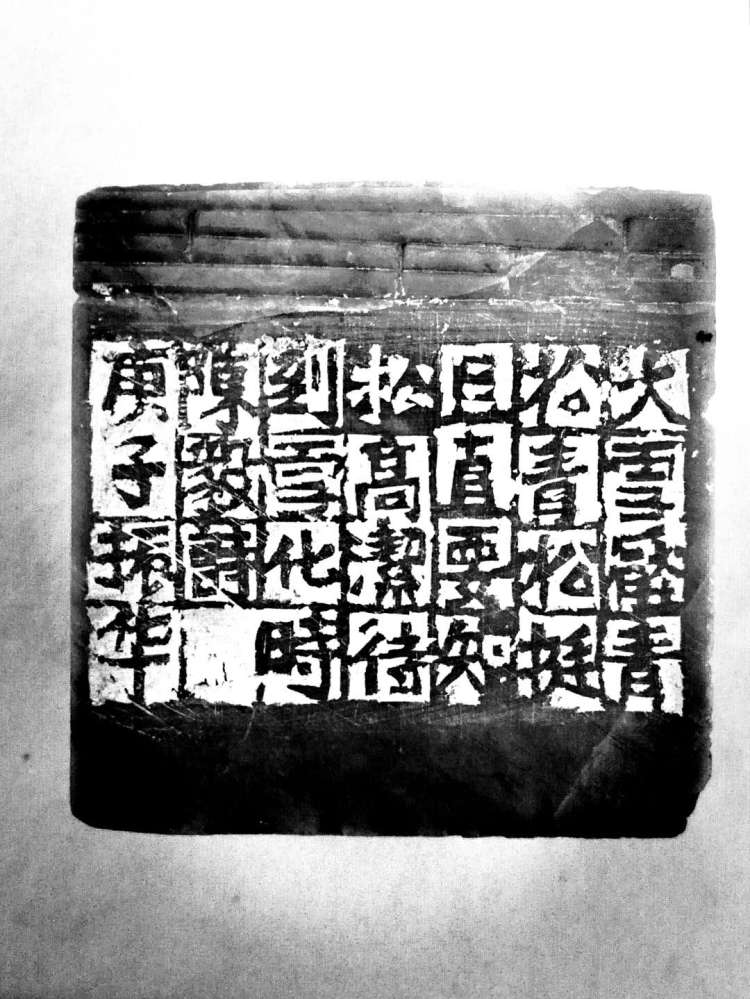 大雪壓青
松青松挺
且直要知
松高潔待
到雪化時
陳毅詩
庚子振华